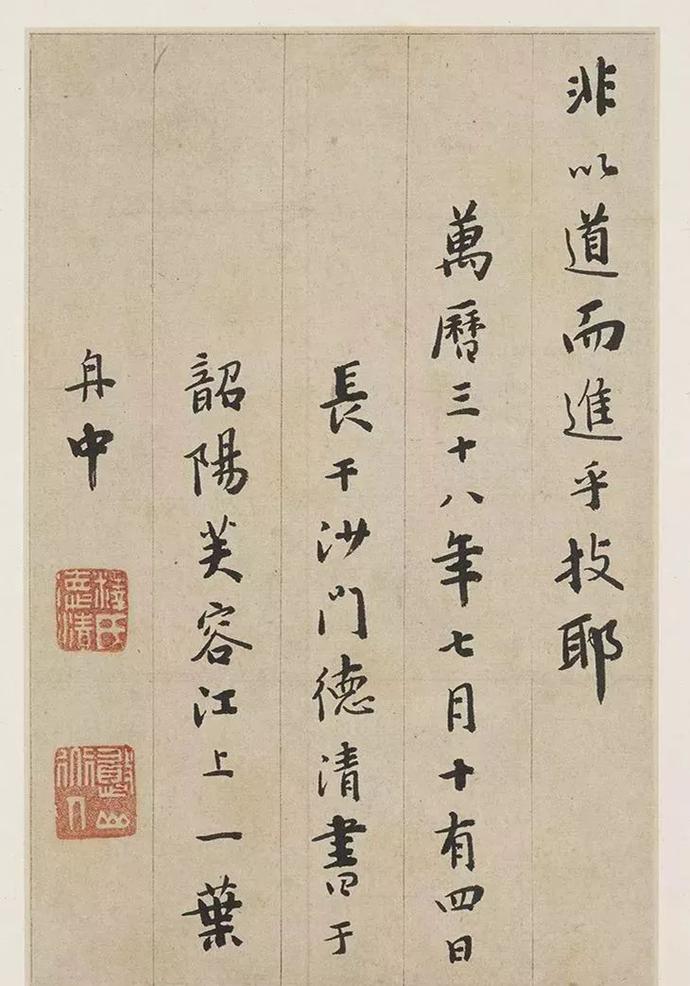 非以道而進乎技耶
萬曆三十八年七月十有四日
長干沙門德清書于
韶陽芙容江上一葉
舟中
釋氏德清
憨山